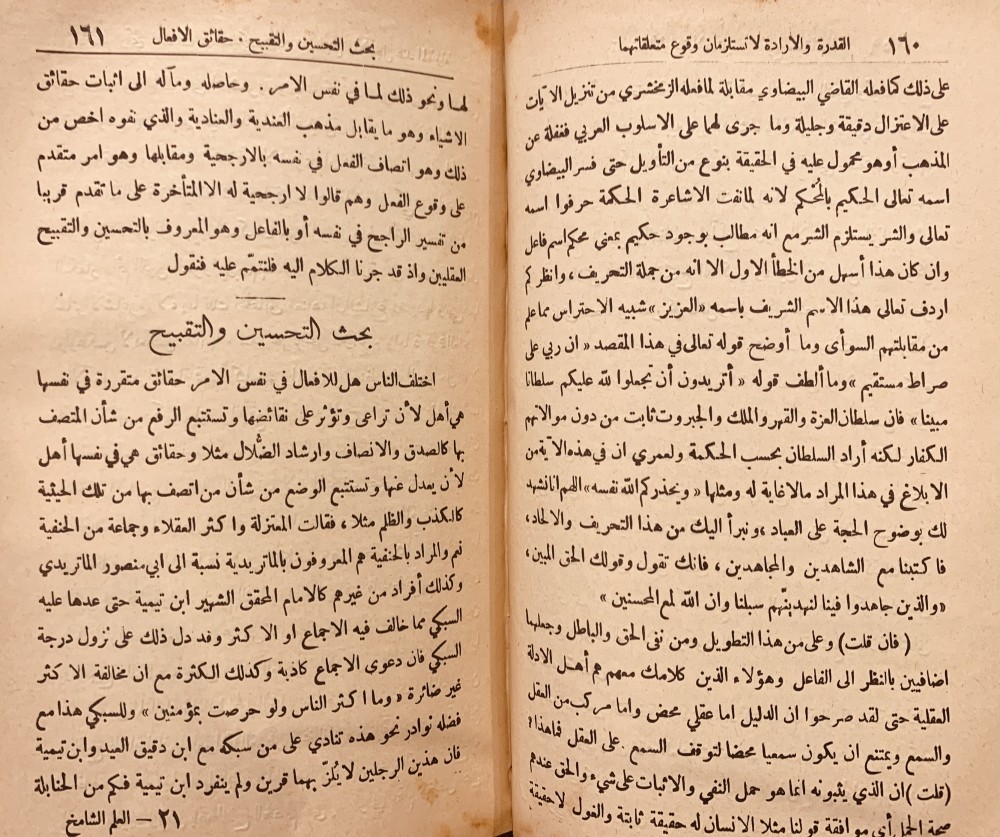 ١٦٠ القدرة والارادة لا تستلزمان وقوع متعلقاتهما
على ذلك كما فعله القاضي البيضاوي مقابلة لما فعله الزمخشري من تنزيل الآيات
على الاعتزال دقيقة وجليلة وما جرى لهما على الاسلوب العربي فغفلة عن
المذهب أو هو محمول عليه في الحقيقة بنوع من التأويل حتى فسر البيضاوي
اسمه تعالى الحكيم بالمُحكِم لانه لما نفت الاشاعرة الحكمة حرفوا اسمه
تعالى والشر يستلزم الشر مع انه مطالب بوجود حكيم بمعنى محكم اسم فاعل
وان كان هذا أسهل من الخطأ الاول الا انه من جملة التحريف ، وانظر كم
اردف تعالى هذا الاسم الشريف باسمه « العزيز » شبيه الاحتراس مما علم
من مقابلتهم السوأى وما أوضح قوله تعالى في هذا المقصد « ان ربي على
صراط مستقيم » وما ألطف قوله « أتريدون أن تجعلوا لله عليكم سلطانا
مبينا » فان سلطان العزة والقهر والملك والجبروت ثابت من دون موالاتهم
الكفار لكنه أراد السلطان بحسب الحكمة ولعمري ان في هذه الآية من
الابلاغ في هذا المراد مالا غاية له ومثلها « ويحذركم الله نفسه » اللهم انا نشهد
لك بوضوح الحجة على العباد ، ونبرأ اليك من هذا التحريف والالحاد،
فاكتبنا مع الشاهدين والمجاهدين ، فانك تقول وقولك الحق المبين،
«والذين جاهدوا فينا لنهدينّهم سبلنا وان الله لمع المحسنين »
( فان قلت) وعلى من هذا التطويل ومن نفى الحق والباطل وجعلهما
اضافيين بالنظر الى الفاعل وهؤلاء الذين كلامك معهم هم أهل الادلة
العقلية حتى لقد صرحوا ان الدليل اما عقلي محض واما مركب من العقل
والسمع ويمتنع ان يكون سمعيا محضا لتوقف السمع على العقل فما هذا ؟
(قلت )ان الذي يثبونه انما هو حمل النفي والاثبات على شيء والحق عندهم
صحة الحمل أي موافقة قولنا مثلا الانسان له حقيقة ثابتة والغول لا حقيقة
بحث التحسين والتقبيح . حقائق الافعال ١٦١
لها ونحو ذلك لما في نفس الامر . وحاصله ومآله الى اثبات حقائق
الاشياء وهو ما يقابل مذهب العندية والعنادية والذي نفوه اخص من
ذلك وهو اتصاف الفعل في نفسه بالارجحية ومقابلها وهو امر متقدم
على وقوع الفعل وهم قالوا لا ارجحية له الا المتأخرة على ما تقدم قريبا
من تفسير الراجح في نفسه أو بالفاعل وهو المعروف بالتحسين والتقبيح
العقليين واذ قد جرنا الكلام اليه فلنتمّم عليه فنقول
بحث التحسين والتقبيح
اختلف الناس هل للافعال في نفس الامر حقائق متقررة في نفسها
هي أهل لأن تراعى وتؤثر على نقائضها وتستتبع الرفع من شأن المتصف
بها كالصدق والانصاف وارشاد الضُّلال مثلا وحقائق هي في نفسها أهل
لأن يعدل عنها وتستتبع الوضع من شأن من اتصف بها من تلك الحيثية
كالكذب والظلم مثلا ، فقالت المعتزلة واكثر العقلاء وجماعة من الحنفية
نعم والمراد بالحنفية هم المعروفون بالماتريدية نسبة الى ابي منصور الماتريدي
وكذلك أفراد من غيرهم كالامام المحقق الشهير ابن تيمية حتى عدها عليه
السبكي مما خالف فيه الاجماع او الاكثر وقد دل ذلك على نزول درجة
السبكي فان دعوى الاجماع كاذبة وكذلك الكثرة مع ان مخالفة الاكثر
غير ضائرة « وما اكثر الناس ولو حرصت بمؤمنين » وللسبكي هذا مع
فضله نوادر نحو هذه تنادي على من سبكه مع ابن دقيق العيد وابن تيمية
فان هذين الرجلين لا يُلَزّ بهما قرين ولم ينفرد ابن تيمية فكم من الحنابلة
٢١ — العلم الشامخ